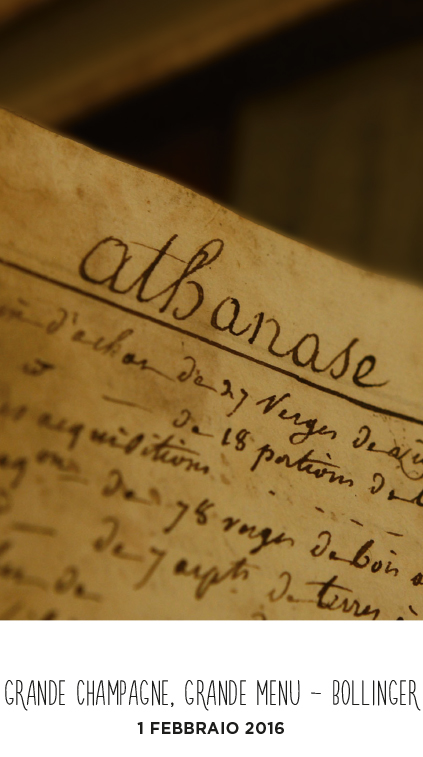 athanase
d'achon de 27 Verges de
de 18 portions de
acquisitions
de 78 verges de bois
de 7 arpts de terres à
de
GRANDE CHAMPAGNE, GRANDE MENU – BOLLINGER
1 FEBBRAIO 2016